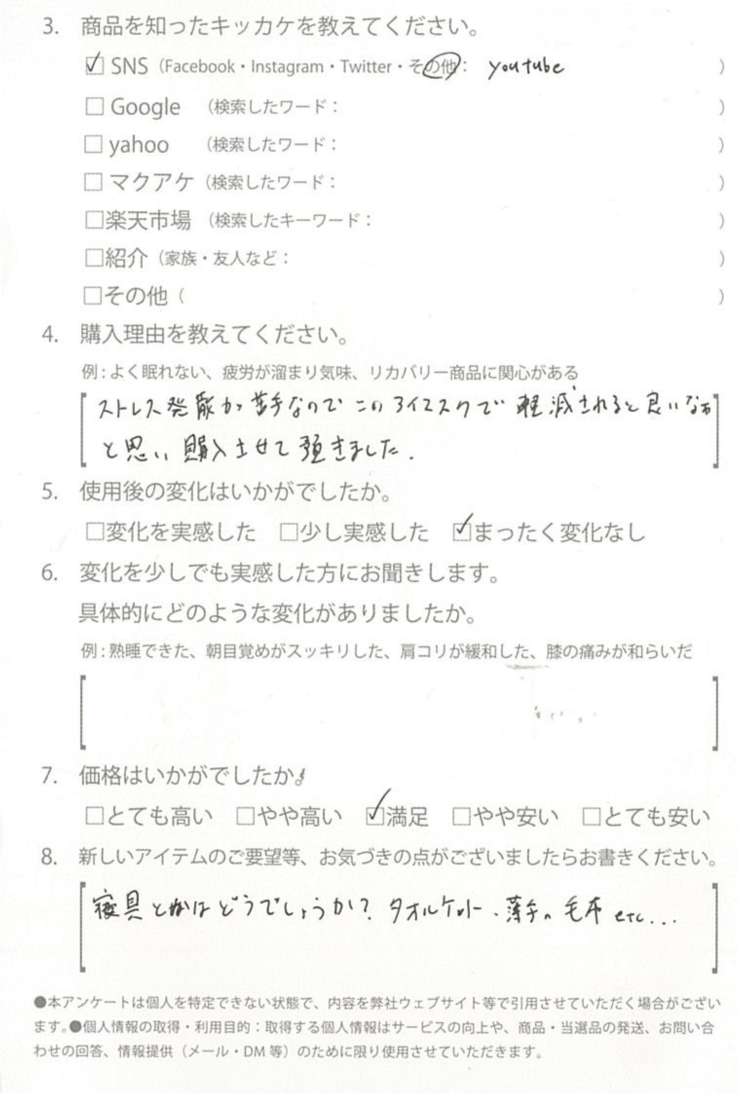 3. 商品を知ったキッカケを教えてください。
☑ SNS（Facebook・Instagram・Twitter・その他： youtube ）
□ Google （検索したワード： ）
□ yahoo （検索したワード： ）
□ マクアケ（検索したワード： ）
□楽天市場（検索したキーワード： ）
□紹介（家族・友人など： ）
□その他（ ）
4. 購入理由を教えてください。
例：よく眠れない、疲労が溜まり気味、リカバリー商品に関心がある
ストレス発散が苦手なのでこのアイマスクで軽減されると良いなぁ
と思い購入させて頂きました.
5. 使用後の変化はいかがでしたか。
□変化を実感した □少し実感した ☑まったく変化なし
6. 変化を少しでも実感した方にお聞きします。
具体的にどのような変化がありましたか。
例：熟睡できた、朝目覚めがスッキリした、肩コリが緩和した、膝の痛みが和らいだ
7. 価格はいかがでしたか。
□とても高い □やや高い ☑満足 □やや安い □とても安い
8. 新しいアイテムのご要望等、お気づきの点がございましたらお書きください。
寝具とかはどうでしょうか？ タオルケット、薄手の毛布 etc...
●本アンケートは個人を特定できない状態で、内容を弊社ウェブサイト等で引用させていただく場合がござい
ます。●個人情報の取得・利用目的：取得する個人情報はサービスの向上や、商品・当選品の発送、お問い合
わせの回答、情報提供（メール・DM 等）のために限り使用させていただきます。